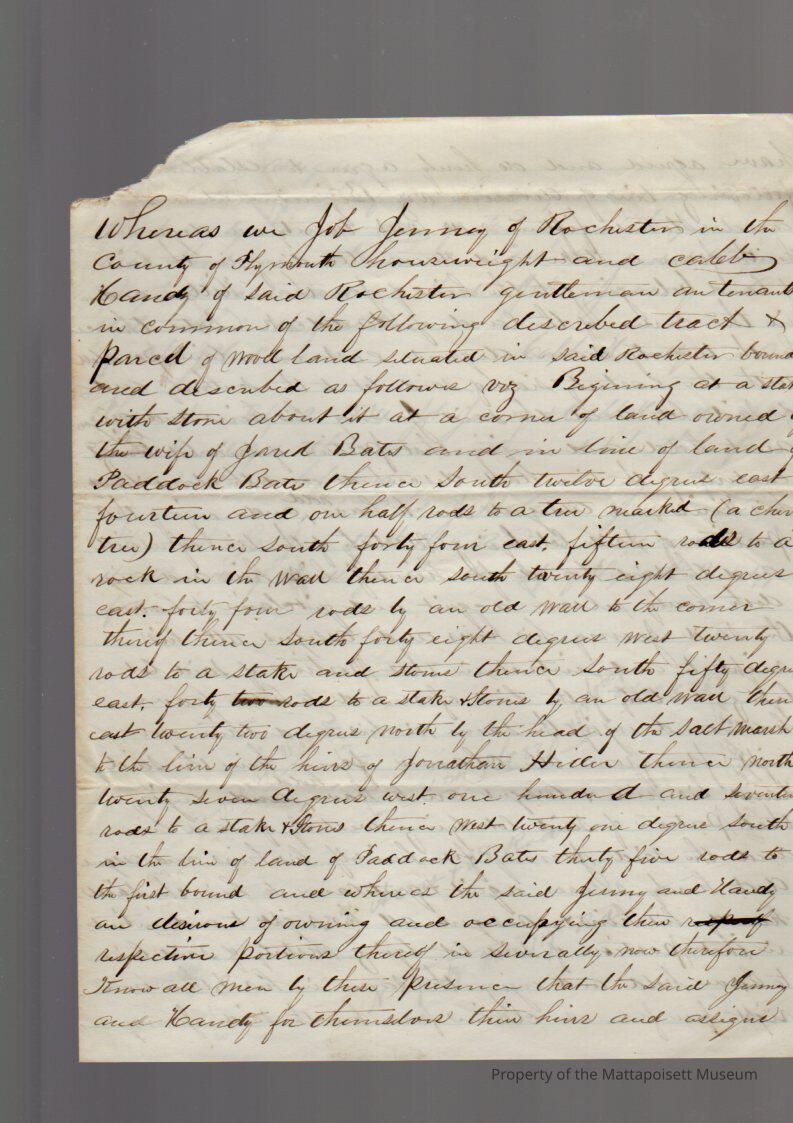 Whereas we Job Jenney of Rochester in the
County of Plymouth housewright and caleb
Handy of said Rochester gentleman are tenants
in common of the following described tract &
parcel of wood land situated in said Rochester bound
and described as follows viz Begining at a stak
with stone about it at a corner of land owned
the wife of Jared Bates and in line of land
Paddock Bates thence South twelve degrees east
fourteen and one half rods to a tree marked (a cher
tree) thence South forty four east. fifteen rods to a
rock in the wall thence South twenty eight degrees
east. forty four rods by an old wall to the corner
thereof thence South forty eight degrees west twenty
rods to a stake and stones thence South fifty degre
east. forty two rods to a stake & Stones by an old wall then
east twenty two degrees north by the head of the Salt marsh
to the line of the heirs of Jonathan Hiller thence north
twenty seven degrees west one hundred and seventee
rods to a stake & Stones thence West twenty one degree South
in the line of land of Paddock Bates thirty five rods to
the first bound and whereas the said Jenney and Handy
are desirous of owning and occupying their
respective portions thereof in severalty now therefore
Know all men by these presence that the said Jenney
and Handy for themselves their heirs and assigns
Property of the Mattapoisett Museum